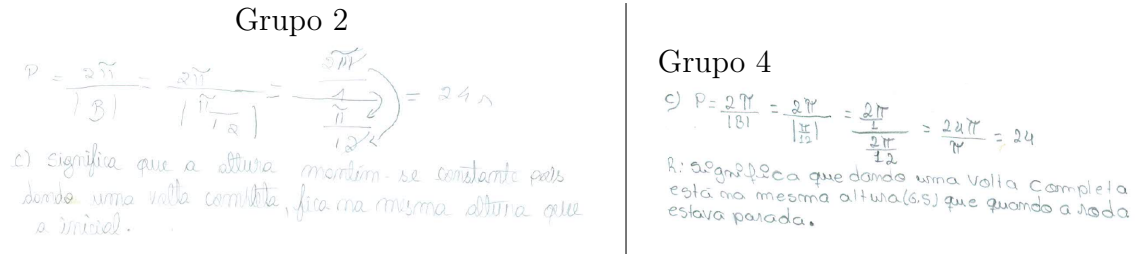 Grupo 2
P = 2π/|B| = 2π/|π/12| = (2π/1)/(π/12) = 24
c) Significa que a altura mantém-se constante pois
dando uma volta completa, fica na mesma altura que
a inicial.
Grupo 4
c) P = 2π/|B| = 2π/|π/12| = (2π/1)/(2π/12) = 24π/π = 24
R: Significa que dando uma volta completa
está na mesma altura (6.5) que quando a roda
estava parada.